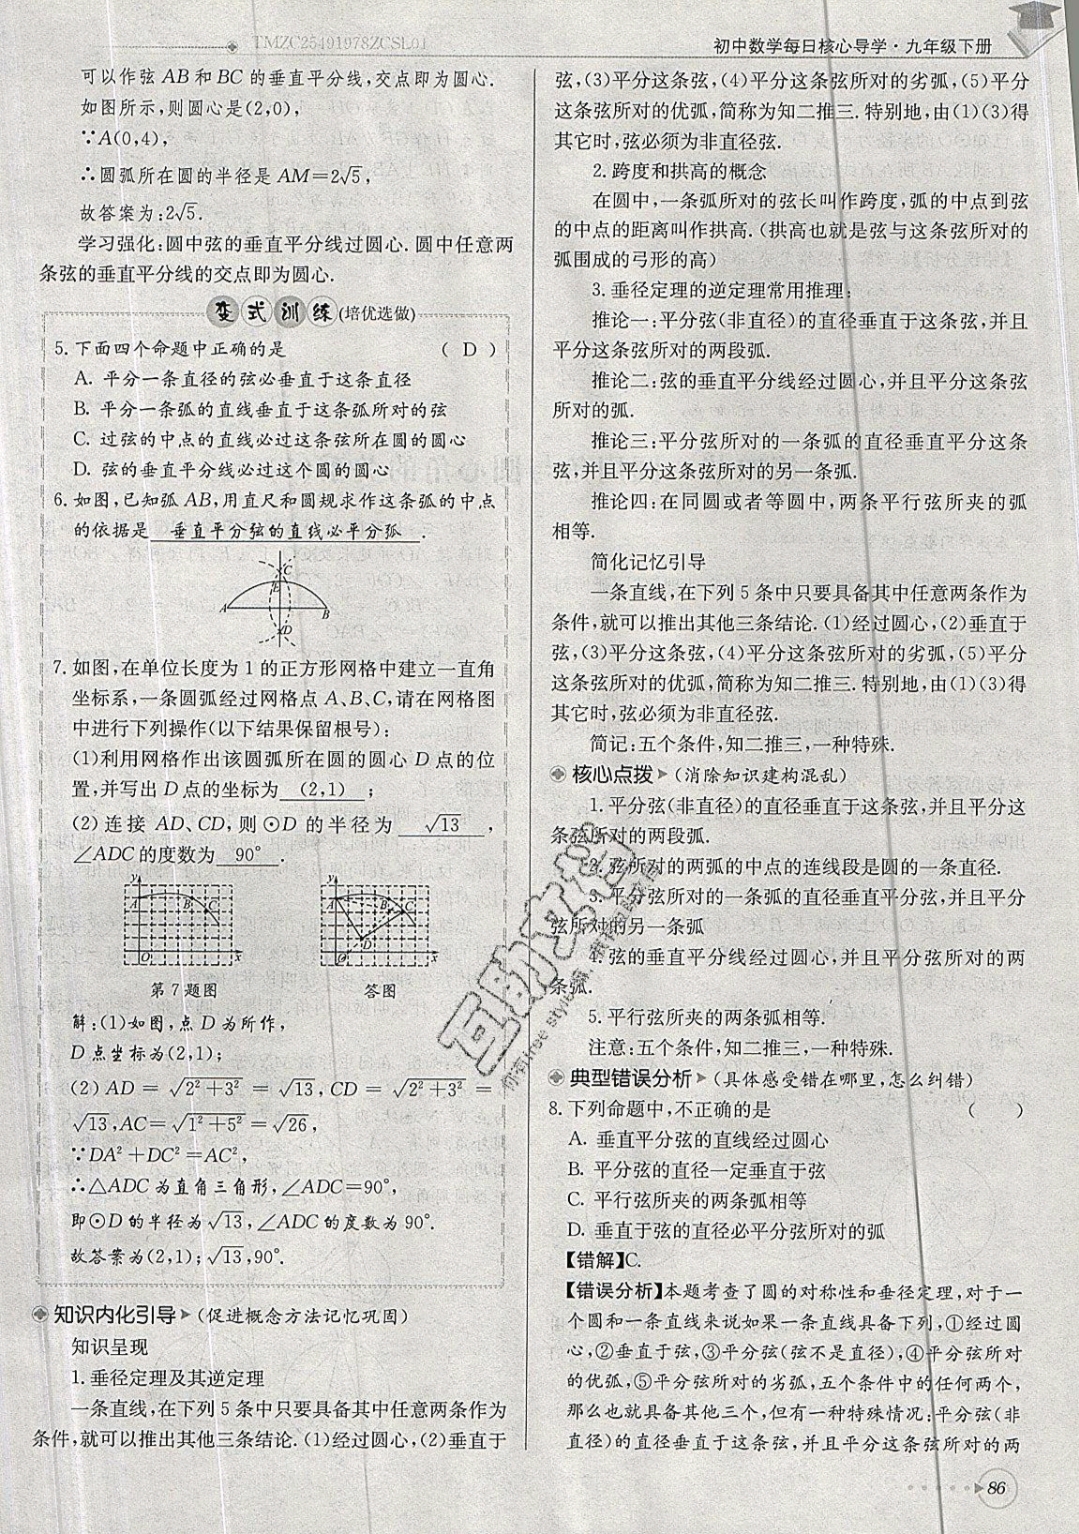 TMZC25491978ZCSL01
初中数学每日核心导学·九年级下册
可以作弦AB和BC的垂直平分线,交点即为圆心.
如图所示,则圆心是(2,0),
∵A(0,4),
∴圆弧所在圆的半径是AM=2√5,
故答案为:2√5.
学习强化:圆中弦的垂直平分线过圆心.圆中任意两
条弦的垂直平分线的交点即为圆心.
变式训练(培优选做)
5.下面四个命题中正确的是 ( D )
A. 平分一条直径的弦必垂直于这条直径
B. 平分一条弧的直线垂直于这条弧所对的弦
C. 过弦的中点的直线必过这条弦所在圆的圆心
D. 弦的垂直平分线必过这个圆的圆心
6.如图,已知弧AB,用直尺和圆规求作这条弧的中点
的依据是 垂直平分弦的直线必平分弧 .
C
E
A B
D
7.如图,在单位长度为1的正方形网格中建立一直角
坐标系,一条圆弧经过网格点A、B、C,请在网格图
中进行下列操作(以下结果保留根号):
(1)利用网格作出该圆弧所在的圆的圆心D点的位
置,并写出D点的坐标为 (2,1) ;
(2)连接AD、CD,则⊙D的半径为 √13 ,
∠ADC的度数为 90° .
y
A B C
O x
y
A B C
D
O x
第7题图 答图
解:(1)如图,点D为所作,
D点坐标为(2,1);
(2) AD = √2²+3² = √13,CD = √2²+3² =
√13,AC=√1²+5²=√26,
∵DA²+DC²=AC²,
∴△ADC为直角三角形,∠ADC=90°,
即⊙D的半径为√13,∠ADC的度数为90°.
故答案为(2,1);√13,90°.
知识内化引导(促进概念方法记忆巩固)
知识呈现
1.垂径定理及其逆定理
一条直线,在下列5条中只要具备其中任意两条作为
条件,就可以推出其他三条结论.(1)经过圆心,(2)垂直于
弦,(3)平分这条弦,(4)平分这条弦所对的劣弧,(5)平分
这条弦所对的优弧,简称为知二推三.特别地,由(1)(3)得
其它时,弦必须为非直径弦.
2.跨度和拱高的概念
在圆中,一条弧所对的弦长叫作跨度,弧的中点到弦
的中点的距离叫作拱高.(拱高也就是弦与这条弦所对的
弧围成的弓形的高)
3.垂径定理的逆定理常用推理:
推论一:平分弦(非直径)的直径垂直于这条弦,并且
平分这条弦所对的两段弧.
推论二:弦的垂直平分线经过圆心,并且平分这条弦
所对的弧.
推论三:平分弦所对的一条弧的直径垂直平分这条
弦,并且平分这条弦所对的另一条弧.
推论四:在同圆或者等圆中,两条平行弦所夹的弧
相等.
简化记忆引导
一条直线,在下列5条中只要具备其中任意两条作为
条件,就可以推出其他三条结论.(1)经过圆心,(2)垂直于
弦,(3)平分这条弦,(4)平分这条弦所对的劣弧,(5)平分
这条弦所对的优弧,简称为知二推三.特别地,由(1)(3)得
其它时,弦必须为非直径弦.
简记:五个条件,知二推三,一种特殊.
核心点拨(消除知识建构混乱)
1.平分弦(非直径)的直径垂直于这条弦,并且平分这
条弦所对的两段弧.
2.弦所对的两弧的中点的连线段是圆的一条直径.
3.平分弦所对的一条弧的直径垂直平分弦,并且平分
弦所对的另一条弧
4.弦的垂直平分线经过圆心,并且平分弦所对的两
条弧.
5.平行弦所夹的两条弧相等.
注意:五个条件,知二推三,一种特殊.
典型错误分析(具体感受错在哪里,怎么纠错)
8.下列命题中,不正确的是 ( )
A. 垂直平分弦的直线经过圆心
B. 平分弦的直径一定垂直于弦
C. 平行弦所夹的两条弧相等
D. 垂直于弦的直径必平分弦所对的弧
【错解】C.
【错误分析】本题考查了圆的对称性和垂径定理,对于一
个圆和一条直线来说如果一条直线具备下列,①经过圆
心,②垂直于弦,③平分弦(弦不是直径),④平分弦所对
的优弧,⑤平分弦所对的劣弧,五个条件中的任何两个,
那么也就具备其他三个,但有一种特殊情况:平分弦(非
直径)的直径垂直于这条弦,并且平分这条弦所对的两
86